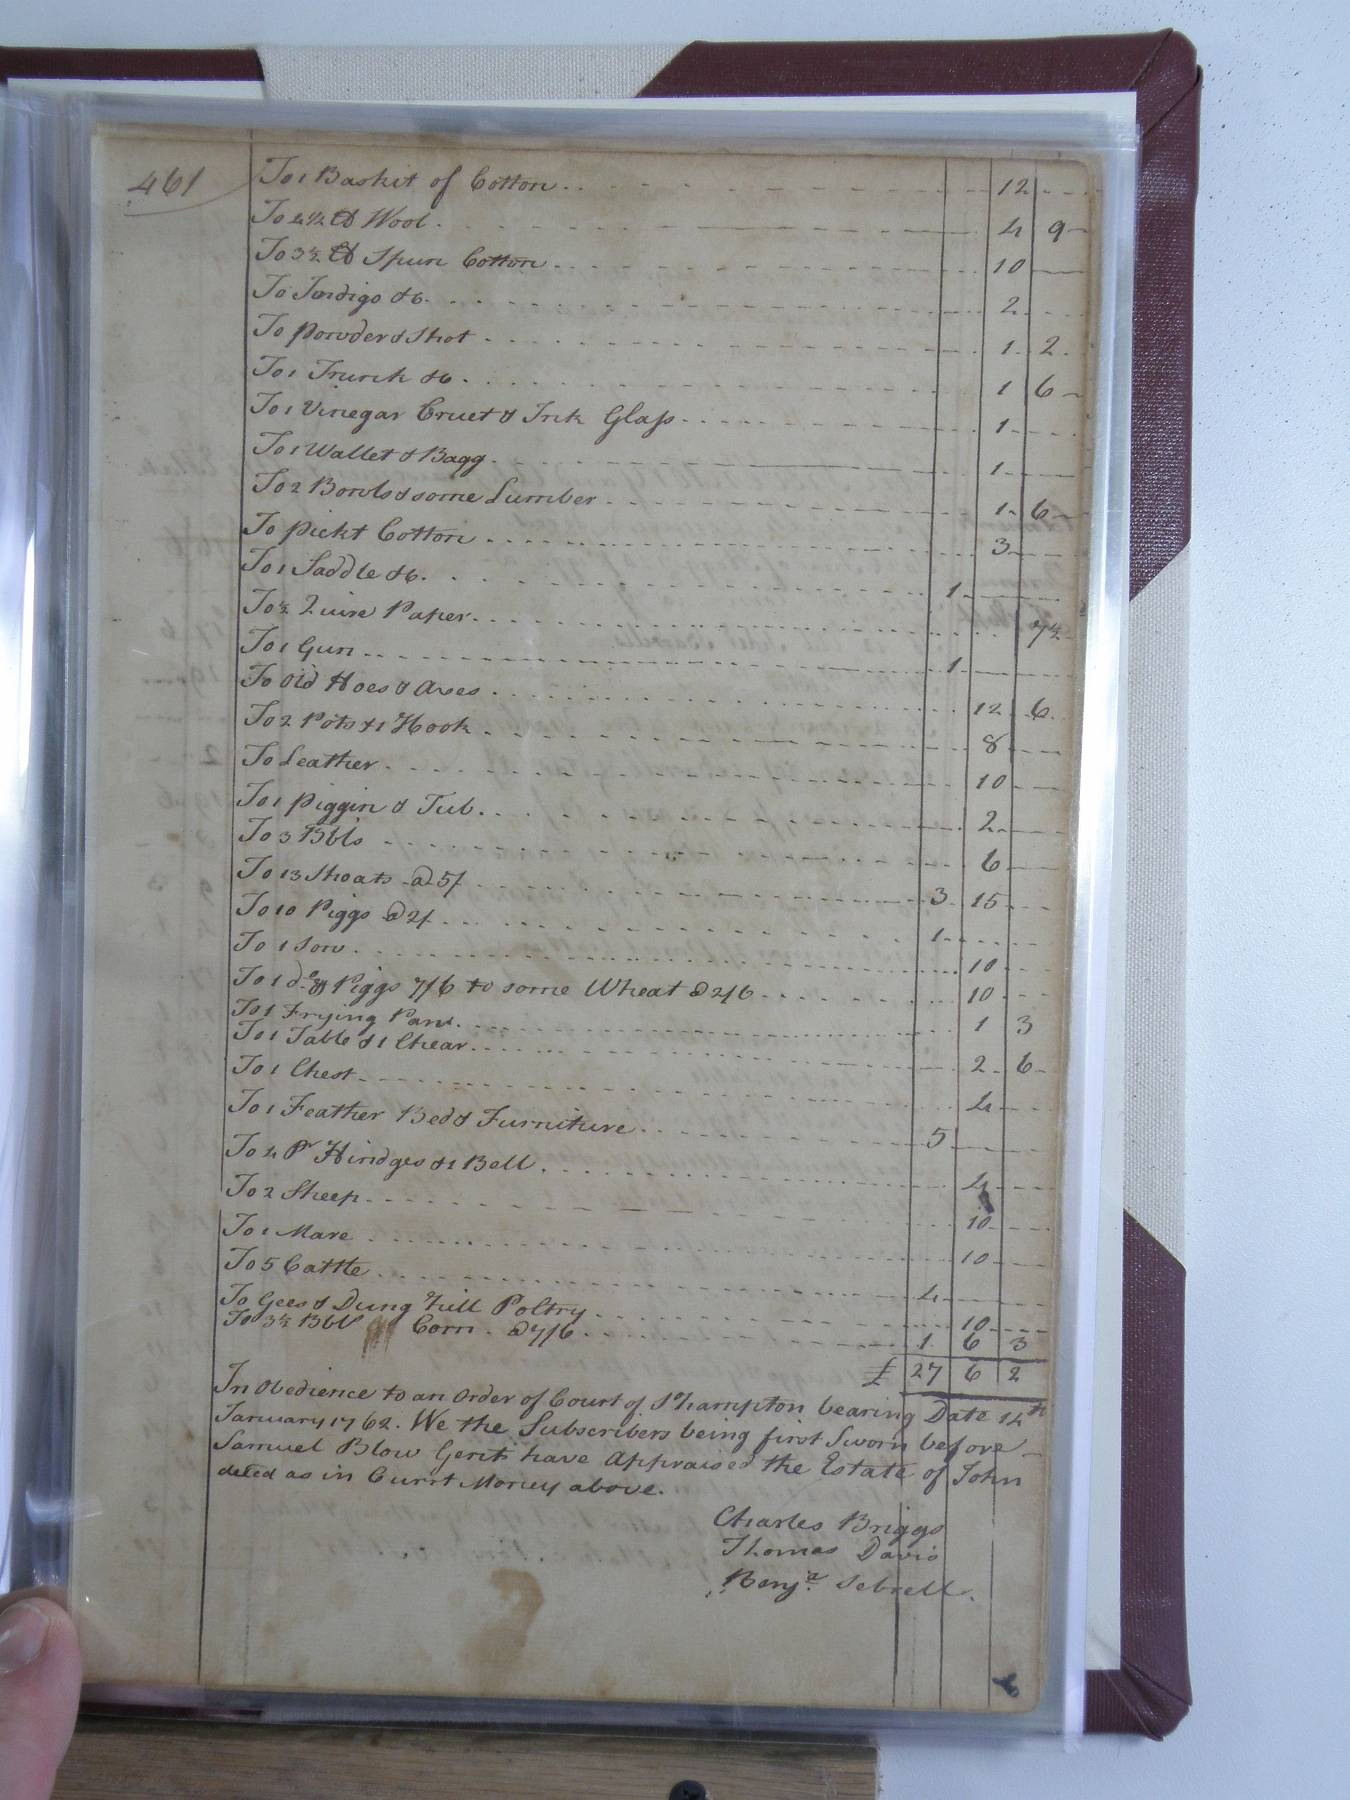 461
To 1 Basket of Cotton 12
To 4½ lb Wool 4 9
To 3½ lb Spun Cotton 10
To Indigo &c. 2
To powder & Shot 1 2
To 1 Trunk &c. 1 6
To 1 Vinegar Cruet & Ink Glass 1
To 1 Wallet & Bagg 1
To 2 Bowls & some Lumber 1 6
To pickt Cotton 3
To 1 Saddle &c. 1
To ½ Quire Paper 7½
To 1 Gun 1
To old Hoes & Axes 12 6
To 2 Pots & 1 Hook 8
To Leather 10
To 1 piggin & Tub 2
To 3 Bbls 6
To 13 Shoats @ 5/ 3 15
To 10 Piggs @ 2/ 1
To 1 Sow 10
To 1 do. & Piggs 7/6 to some Wheat @ 2/6 10
To 1 Frying Pan 1 3
To 1 Table & 1 Chear 2 6
To 1 Chest 4
To 1 Feather Bed & Furniture 5
To 4 Pr Hindges & 1 Bell 4
To 2 Sheep 10
To 1 Mare 10
To 5 Cattle 4
To Gees & Dung hill Poltry 10
To 3½ Bbls Corn @ 7/6 1 6 3
£ 27 6 2
In Obedience to an Order of Court of Shampton bearing Date 14th
January 1762. We the Subscribers being first Sworn before
Samuel Blow Gent. have Appraised the Estate of John
deced as in Currt Money above.
Charles Briggs
Thomas Davis
Benja. Sebrell